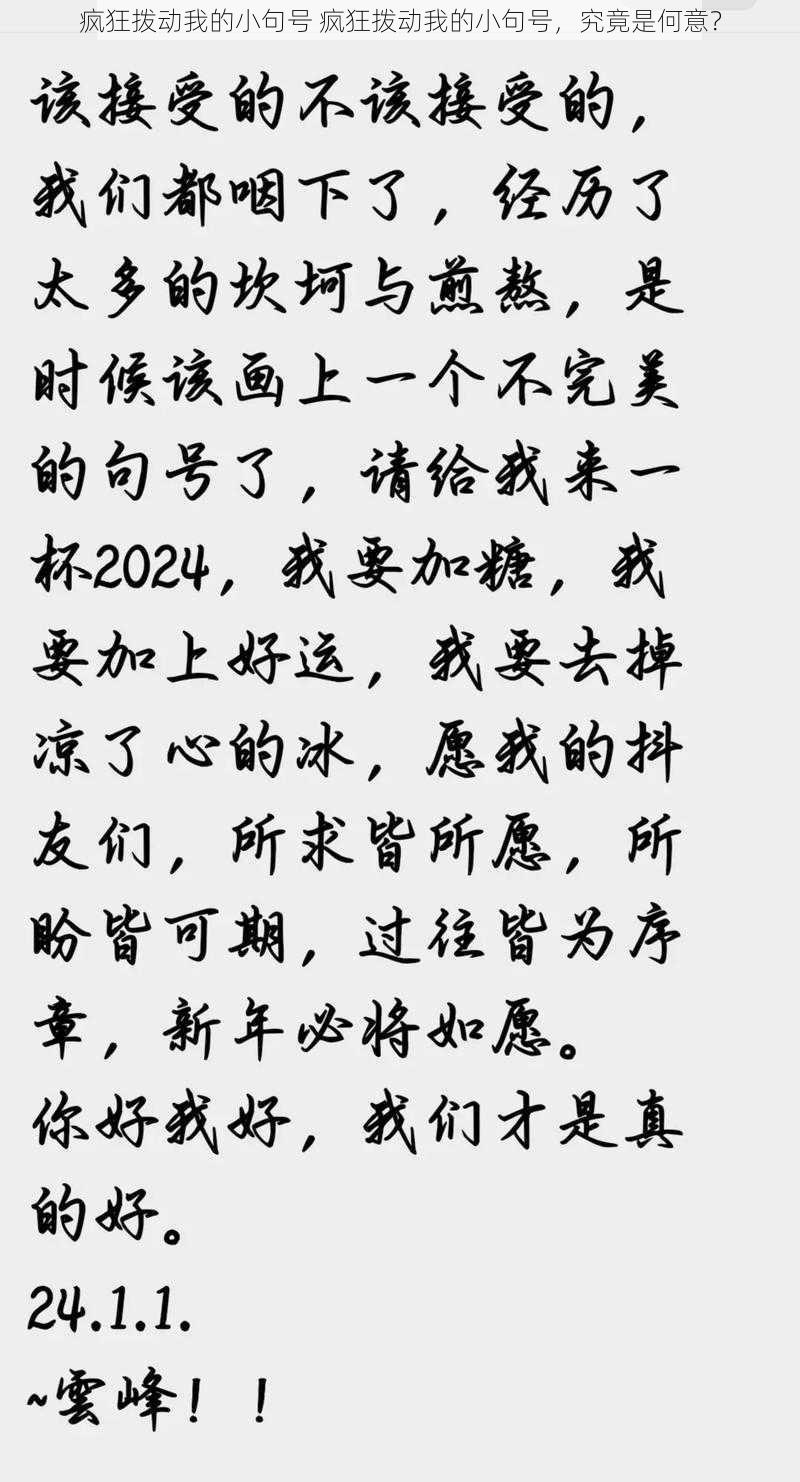 疯狂拨动我的小句号 疯狂拨动我的小句号，究竟是何意？
该接受的不该接受的，
我们都咽下了，经历了
太多的坎坷与煎熬，是
时候该画上一个不完美
的句号了，请给我来一
杯2024，我要加糖，我
要加上好运，我要去掉
凉了心的冰，愿我的抖
友们，所求皆所愿，所
盼皆可期，过往皆为序
章，新年必将如愿。
你好我好，我们才是真
的好。
24.1.1.
~雲峰！！